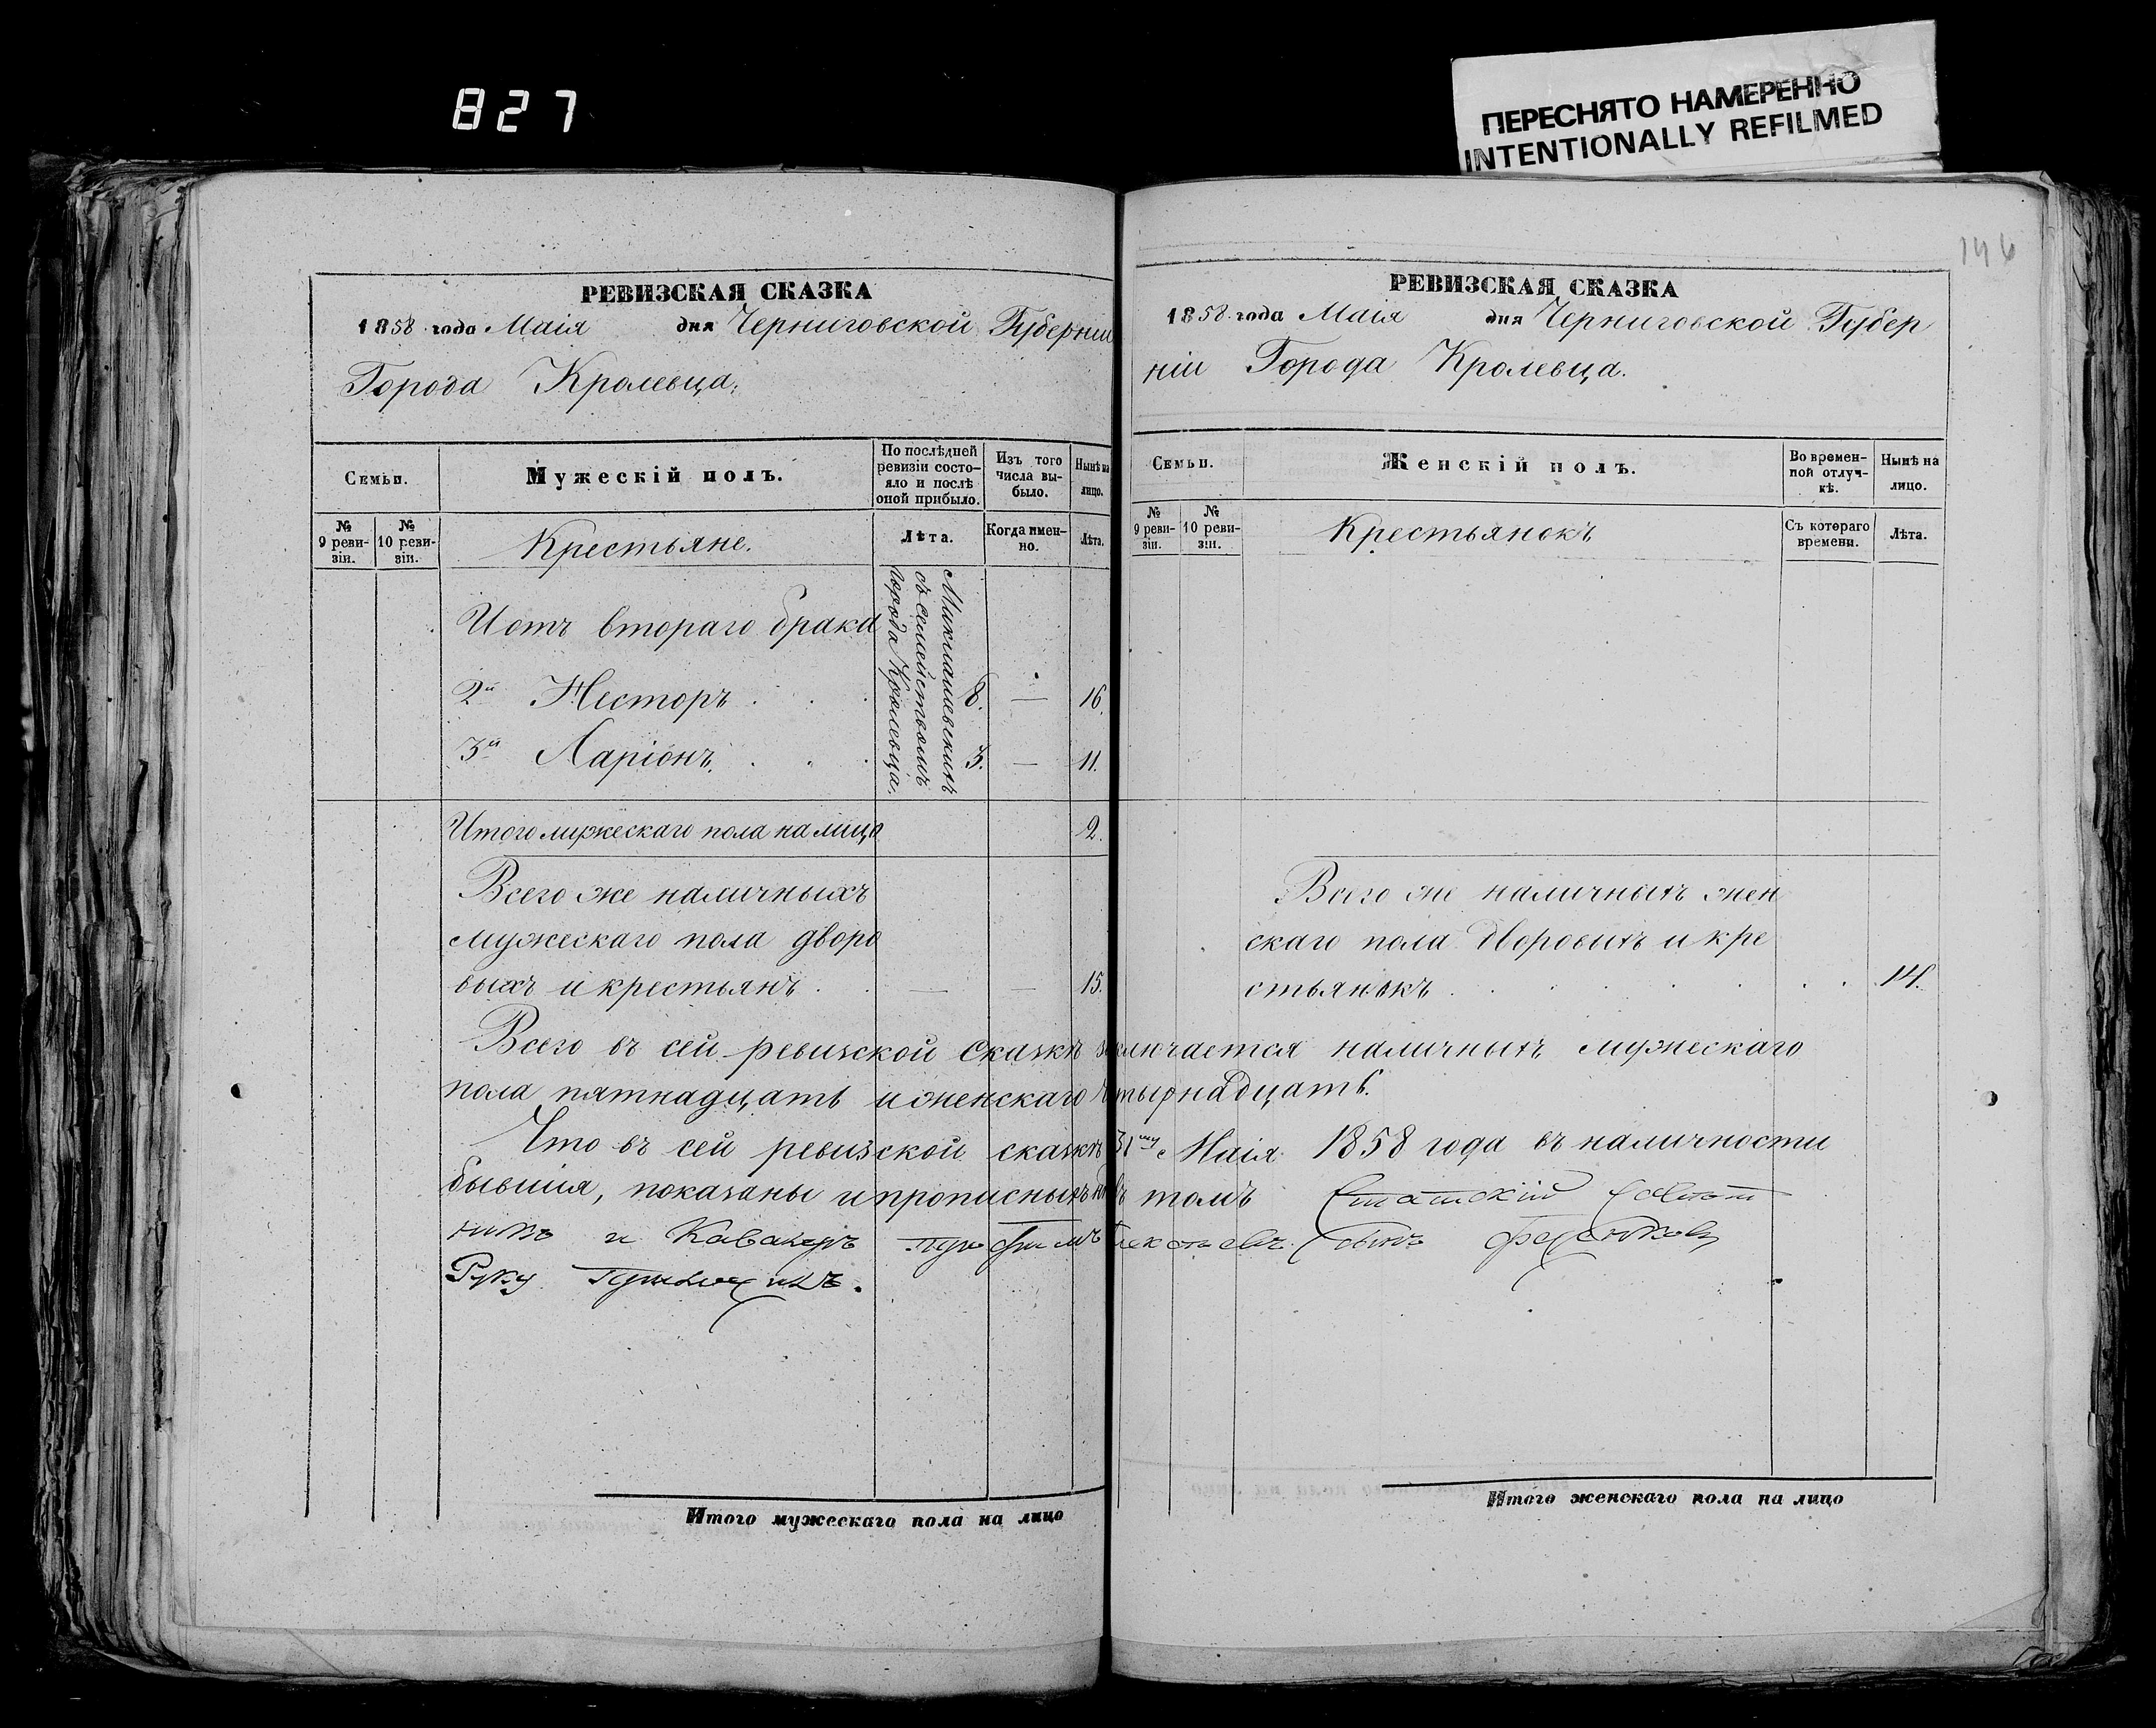 827
ПЕРЕСНЯТО НАМЕРЕННО
INTENTIONALLY REFILMED
РЕВИЗСКАЯ СКАЗКА
1858 года Маія дня Черниговской Губерніи
Города Кролевца.
Семьи.
Мужескій полъ.
По послѣдней ревизіи состояло и послѣ оной прибыло.
Изъ того числа выбыло.
Нынѣ на лицо.
№ 9 ревизіи.
№ 10 ревизіи.
Крестьяне.
Лѣта.
Когда именно.
Лѣта.
съ семействомъ
города Кролевца.
И отъ втораго брака
2й Несторъ 8. — 16.
3й Ларіонъ. 3. — 11.
Итого мужескаго пола на лицо 2.
Всего же наличныхъ
мужескаго пола дворо
выхъ и крестьянъ — — 15.
146
РЕВИЗСКАЯ СКАЗКА
1858 года Маія дня Черниговской Губер
ніи Города Кролевца.
Семьи.
Женскій полъ.
Во временной отлучкѣ.
Нынѣ на лицо.
№ 9 ревизіи.
№ 10 ревизіи.
Крестьянокъ
Съ котораго времени.
Лѣта.
Всего же наличныхъ жен
скаго пола дворовыхъ и кре
стьянокъ 14.
Всего въ сей ревизской сказкѣ заключается наличныхъ мужескаго
пола пятнадцать и женскаго четырнадцать.
Что въ сей ревизской сказкѣ 31му Маія 1858 года въ наличности
бывшія, показаны и прописныхъ нѣтъ въ томъ Статскій Совѣт
никъ и Кавалеръ сынъ
Руку приложилъ.
Итого мужескаго пола на лицо
Итого женскаго пола на лицо